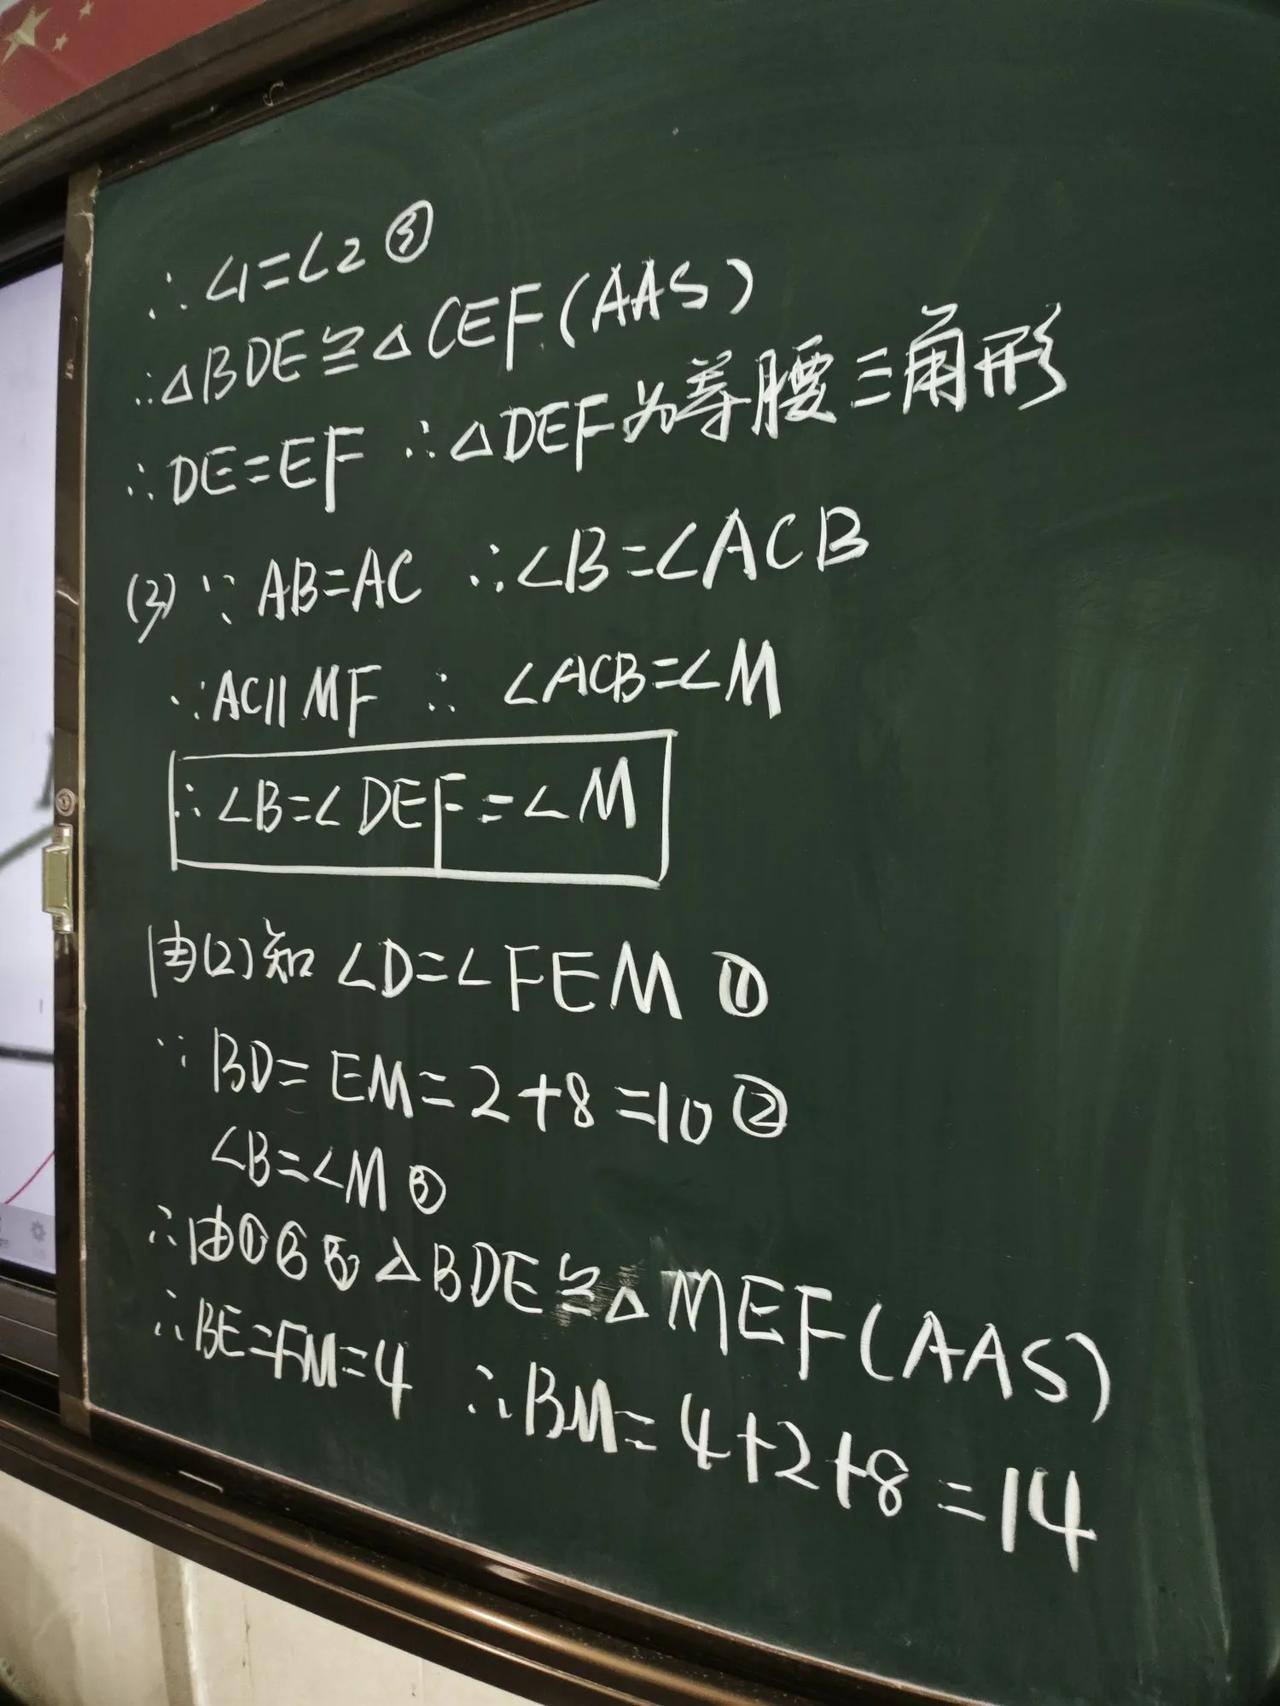 ∴∠1=∠2③
∴△BDE≌△CEF(AAS)
∴DE=EF ∴△DEF为等腰三角形
(3) ∵AB=AC ∴∠B=∠ACB
∵AC∥MF ∴ ∠ACB=∠M
∴∠B=∠DEF=∠M
由(2)知 ∠D=∠FEM ①
∵ BD=EM=2+8=10②
∠B=∠M③
∴由①②③ △BDE≌△MEF(AAS)
∴BE=FM=4 ∴BM=4+2+8=14